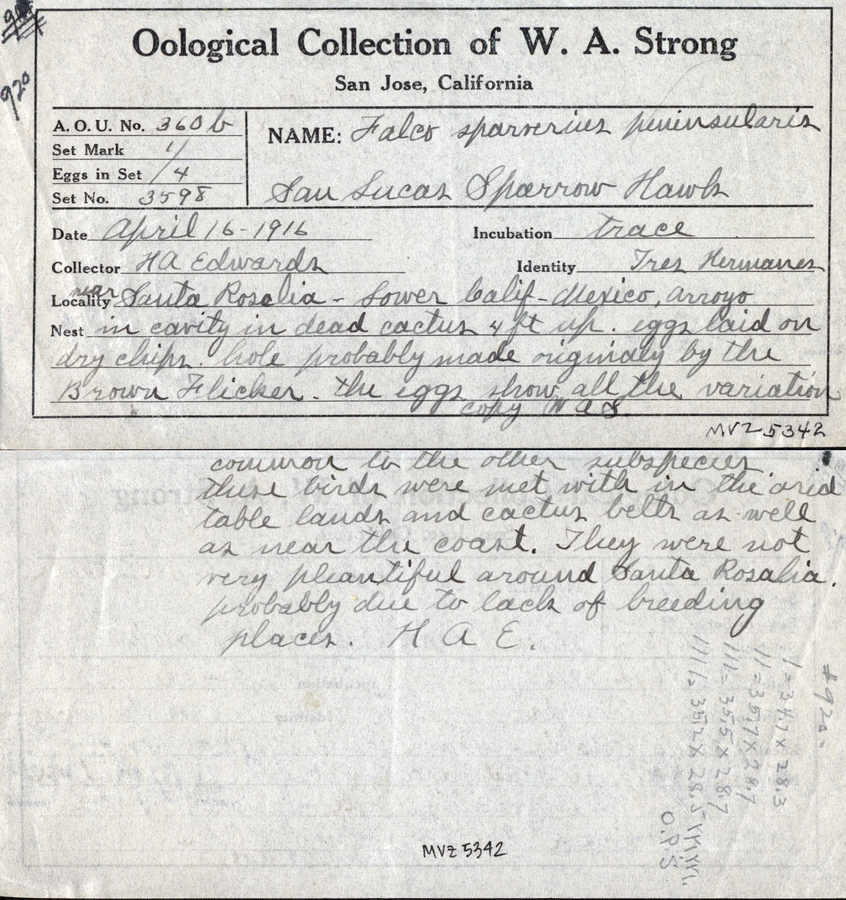 920
Oological Collection of W. A. Strong
San Jose, California
A. O. U. No. 360b
Set Mark 1/
Eggs in Set /4
Set No. 3598
NAME: Falco sparverius peninsularis
San Lucas Sparrow Hawk
Date April 16-1916
Incubation trace
Collector HA Edwards
Identity Tres Hermanes
near
Locality Santa Rosalia - Lower Calif - Mexico, arroyo
Nest in cavity in dead cactus 4 ft up. eggs laid on
dry chips hole probably made originaly by the
Brown Flicker. the eggs show all the variation
copy W A S
MVZ 5342
common to the other subspecies
these birds were met with in the arid
table lands and cactus belts as well
as near the coast. They were not
very pleantiful around Santa Rosalia.
probably due to lack of breeding
places. H A E.
#920-
1=34.7 x 28.3
11=35.7 x 28.7
111=35.5 x 28.7
1111=35.2 x 28.5
O.P.S.
MVZ 5342